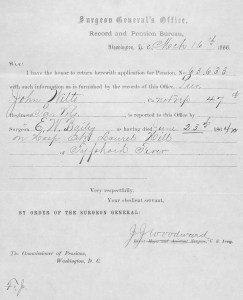 Surgeon General's Office,
Record and Pension Bureau,
Washington, D. C., March 16th 1869.
SIR:
I have the honor to return herewith application for Pension, No. 63.633
with such information as is furnished by the records of this Office.
John
Regiment Pa. Vols., is reported to this Office by
Surgeon, E. M. Bailey as having died June 23d 1864
on Hosp.
Typhoid Fever
Very respectfully,
Your obedient servant,
BY ORDER OF THE SURGEON GENERAL:
J J Woodward
Surgeon, U. S. Army.
The Commissioner of Pensions,
Washington, D. C.